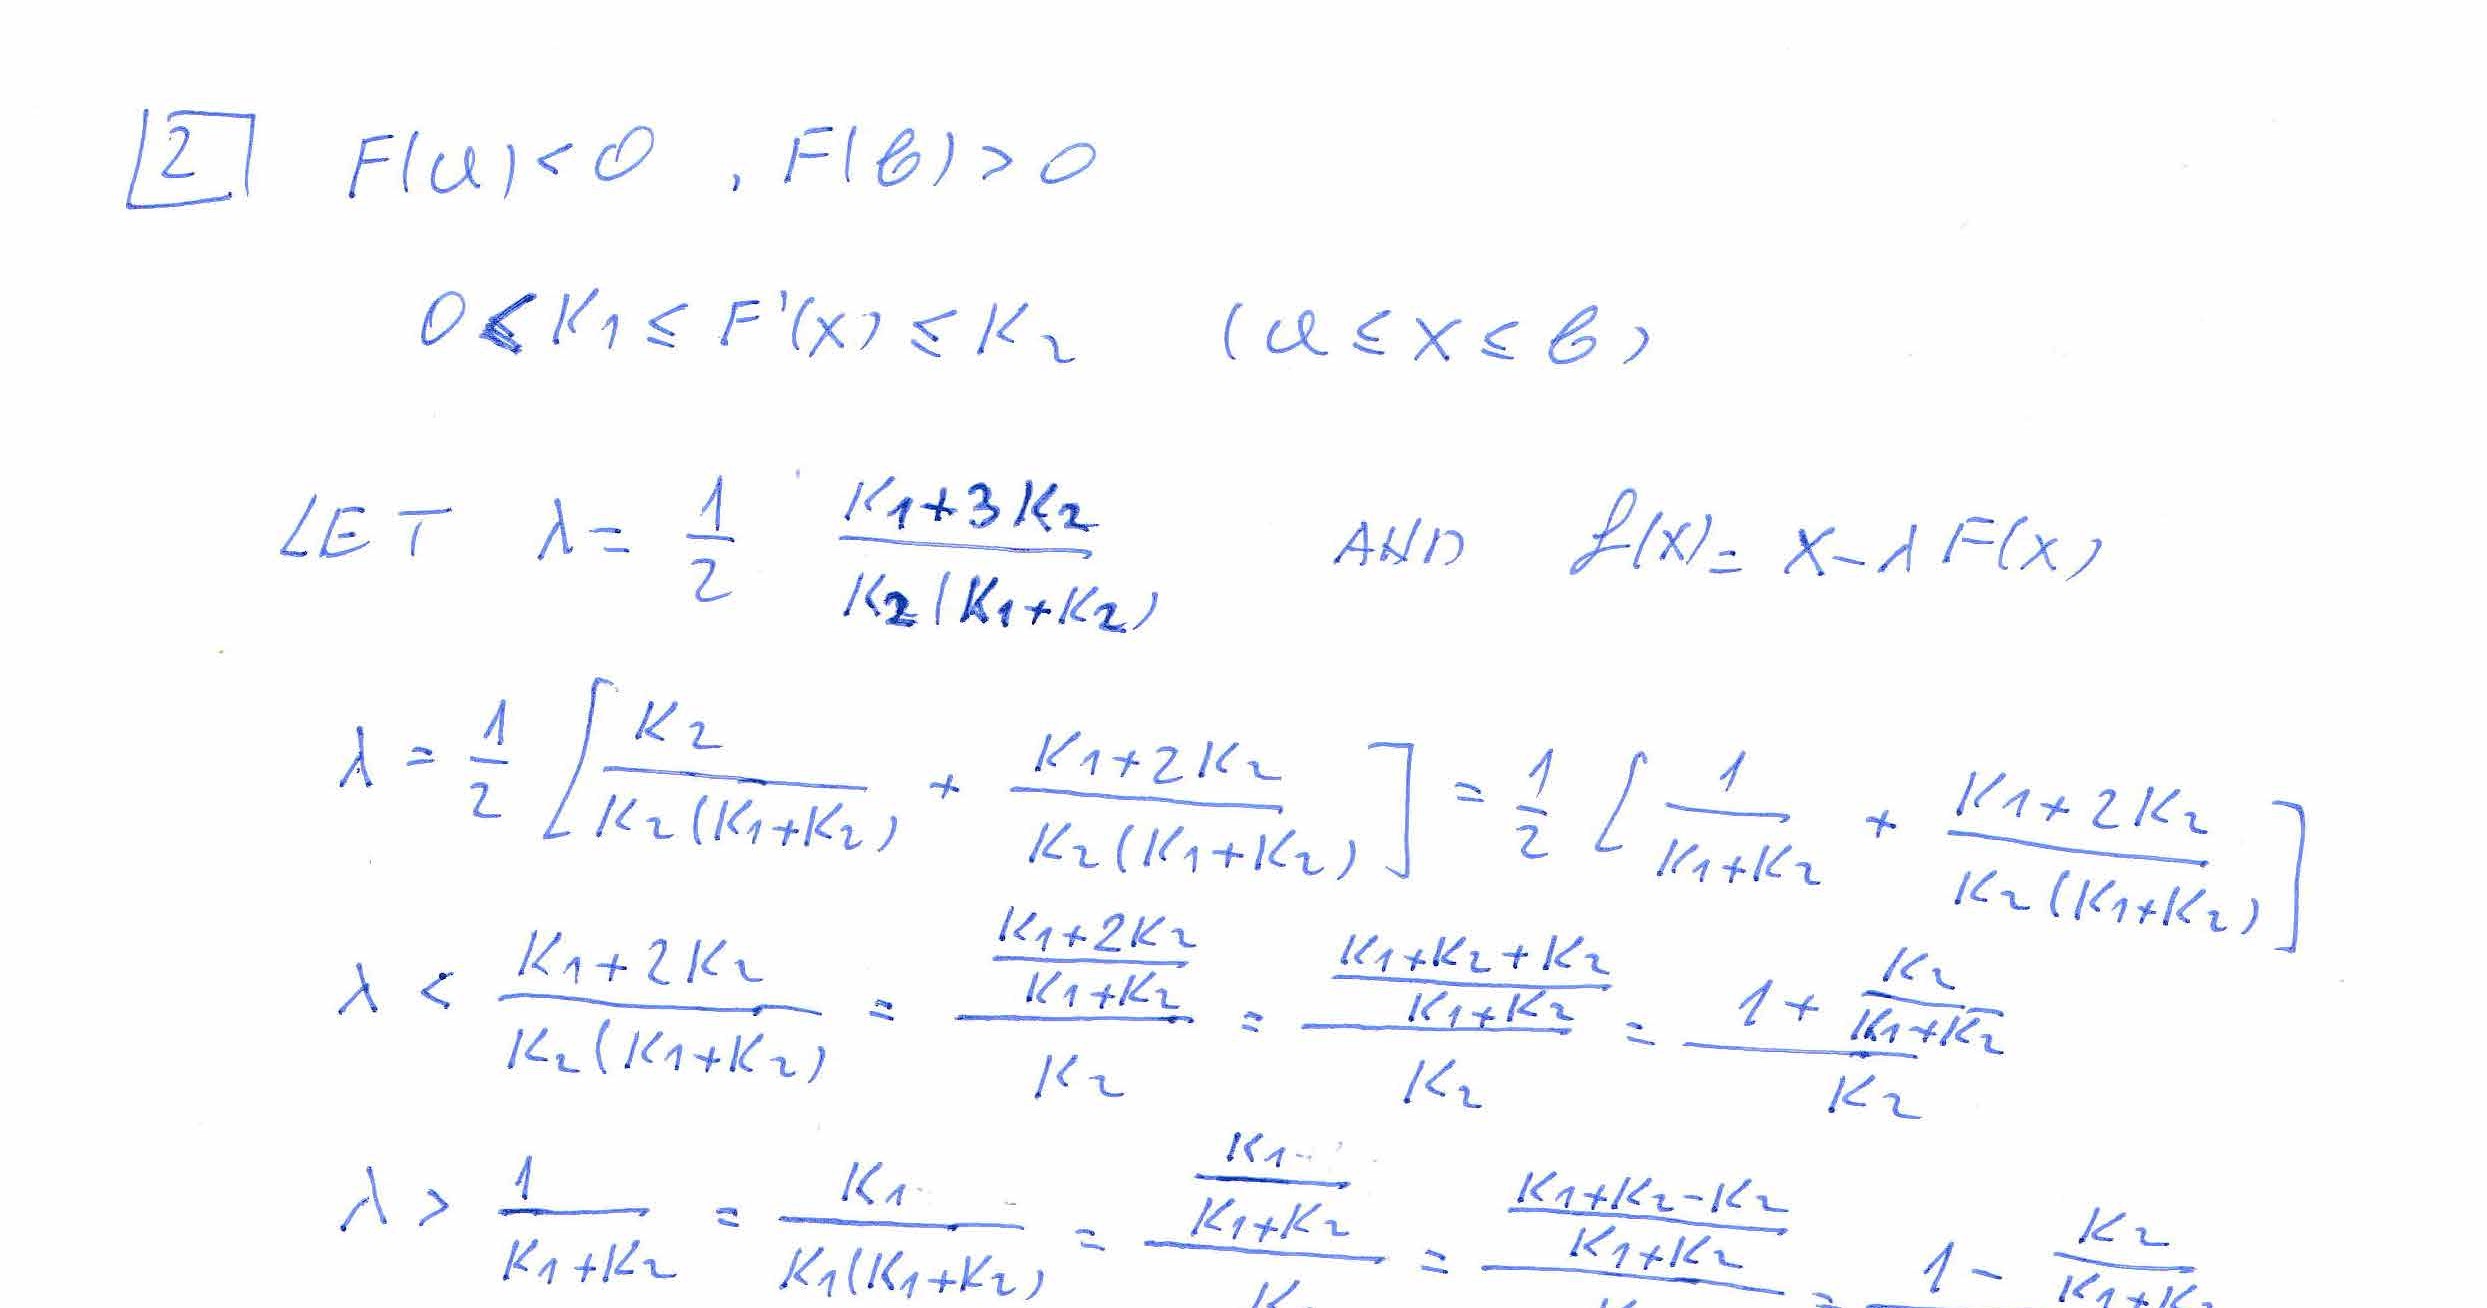 2 F(a) < 0 , F(b) > 0
0 < K₁ ≤ F'(x) ≤ K₂ (a ≤ x ≤ b)
LET λ = 1/2 (K₁+3K₂)/(K₂(K₁+K₂)) AND f(x) = x - λF(x)
λ = 1/2 [K₂/(K₂(K₁+K₂)) + (K₁+2K₂)/(K₂(K₁+K₂))] = 1/2 [1/(K₁+K₂) + (K₁+2K₂)/(K₂(K₁+K₂))]
λ < (K₁+2K₂)/(K₂(K₁+K₂)) = ((K₁+2K₂)/(K₁+K₂))/K₂ = ((K₁+K₂+K₂)/(K₁+K₂))/K₂ = (1 + K₂/(K₁+K₂))/K₂
λ > 1/(K₁+K₂) = K₁/(K₁(K₁+K₂)) = (K₁/(K₁+K₂))/K = ((K₁+K₂-K₂)/(K₁+K₂))/ = 1 - K₂/(K₁+K₂